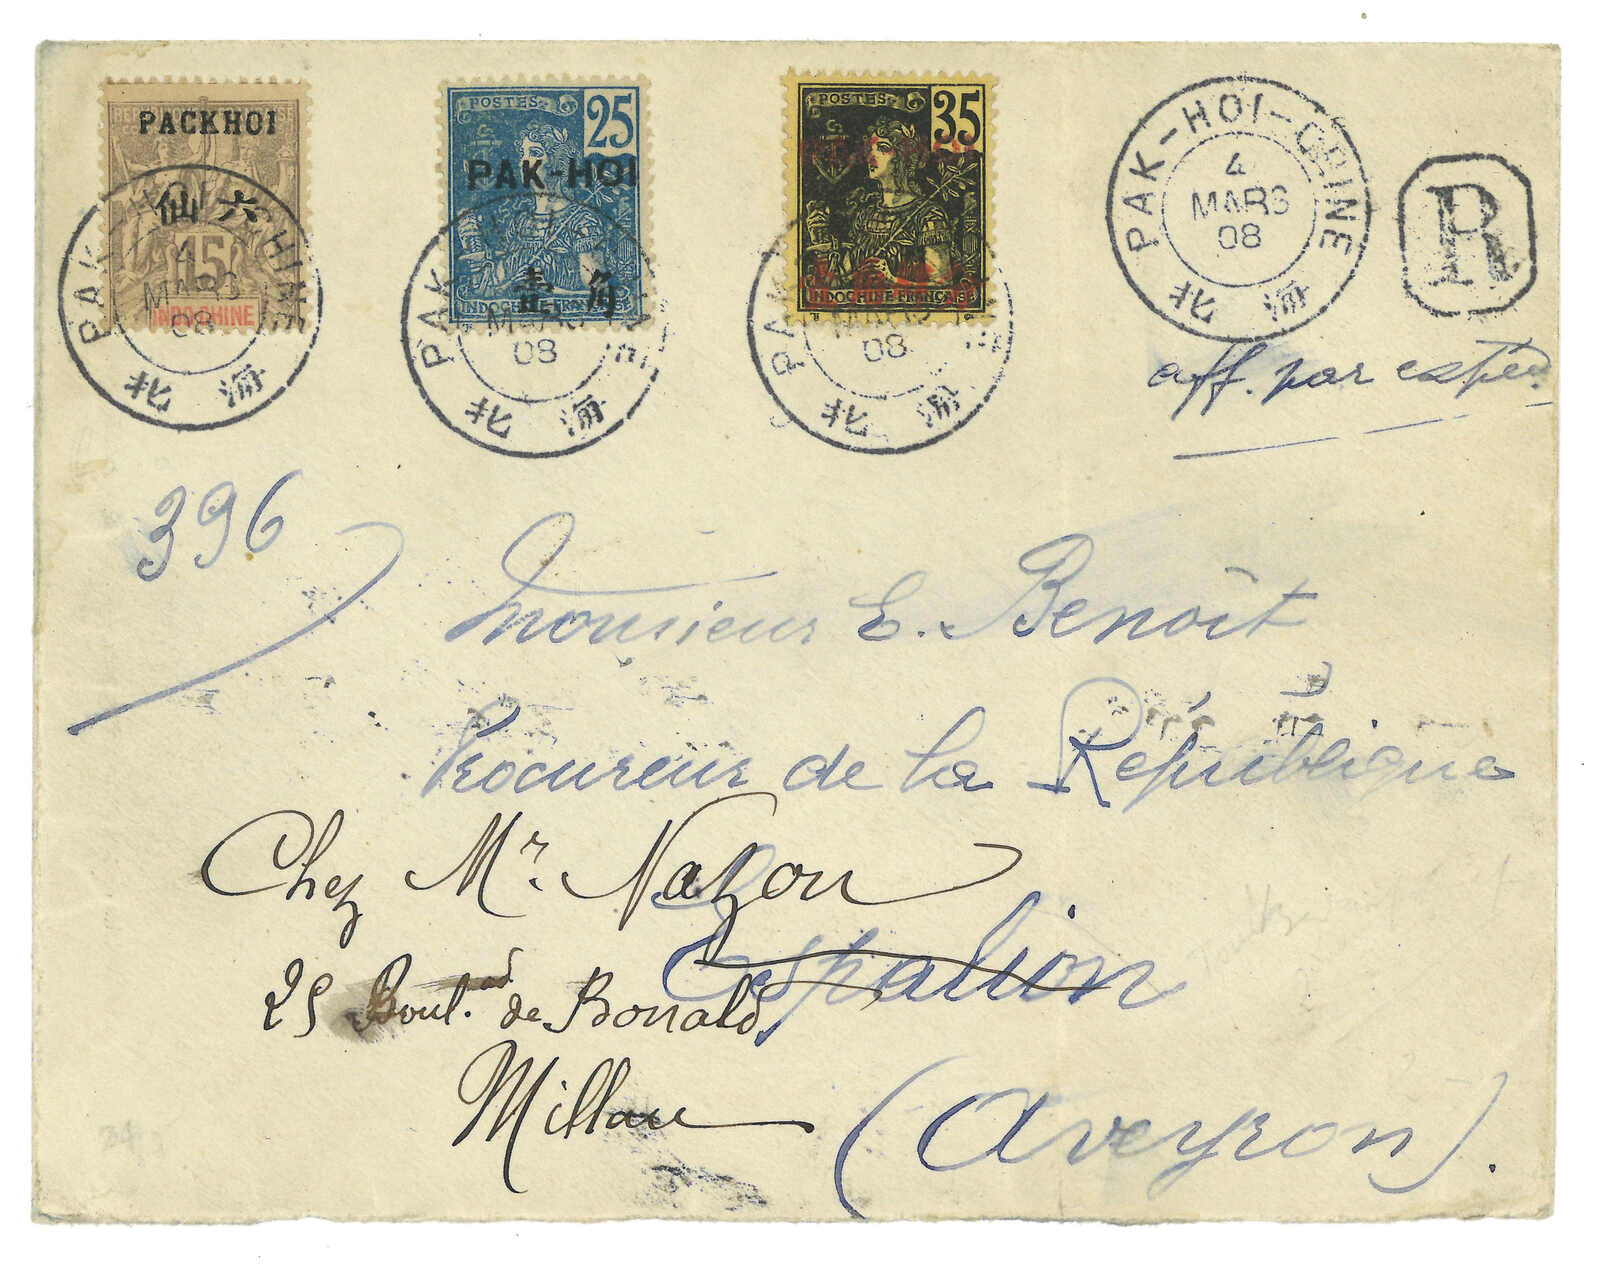 PACKHOI
仙六
15
INDOCHINE
PAK-HOI-CHINE
4
MARS
08
POSTES
25
PAK-HOI
INDOCHINE FRANÇAISE
角
PAK
MARS
08
POSTES
35
INDOCHINE FRANÇAISE
PAK
MARS
08
PAK-HOI-CHINE
4
MARS
08
北海
R
aff. par
396
Monsieur E. Benoît
Procureur de la République
Chez Mr. Nazon
Espalion
25 Boul.ard de Bonald
Millau
(Aveyron).